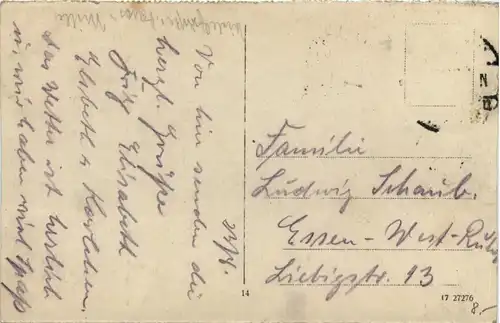 23/8.
Von hier senden die
herzl. Grüße
Fritz Elisabeth
Elsbeth & Karlchen.
das Wetter ist herrlich
u. wir haben viel Spaß
Familie
Ludwig Schaub.
Essen-West-Ruhr
Liebigstr. 93
14
17 27276
8.-